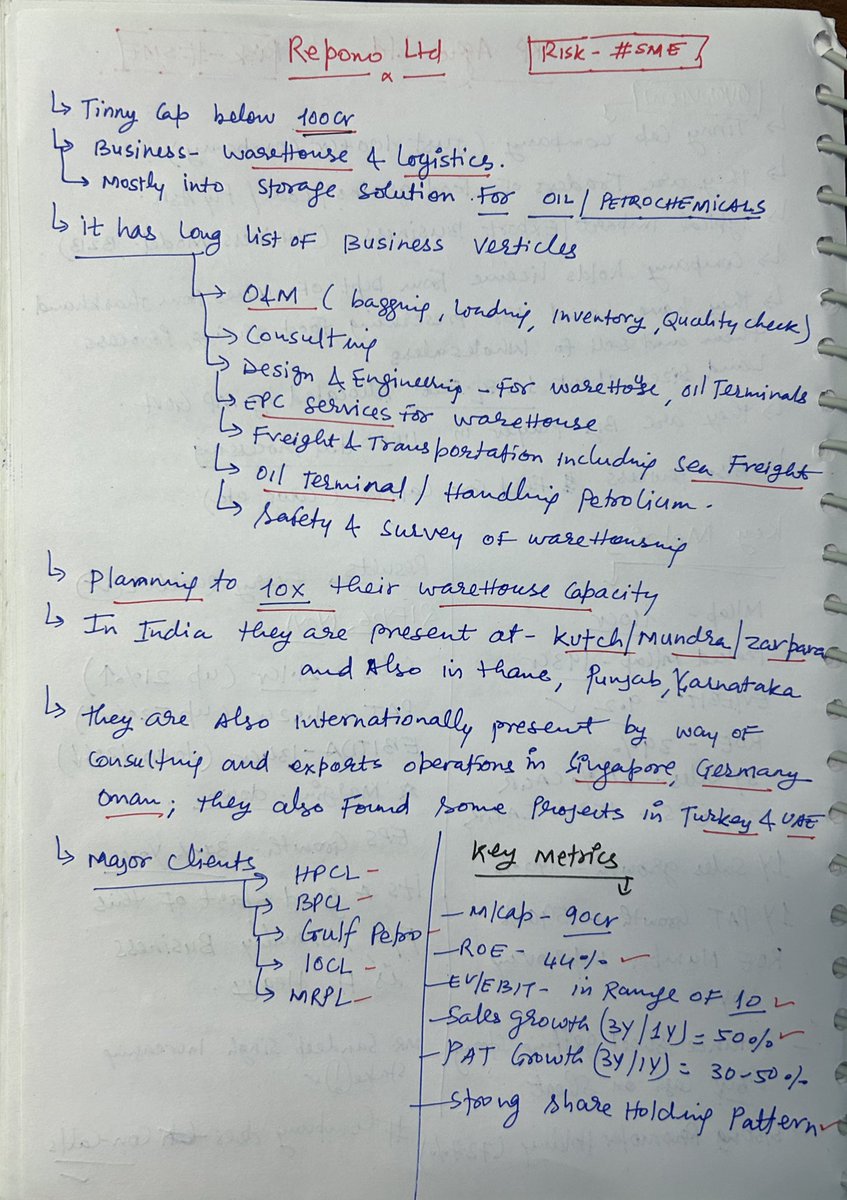 Repono Ltd
Risk - #SME
↳ Tinny Cap below 100cr
↳ Business - warehouse & logistics.
↳ Mostly into storage solution for OIL / PETROCHEMICALS
↳ it has long list of Business verticles
→ O&M ( bagging, Loading, inventory, Quality check)
→ Consulting
→ Design & Engineering - For warehouse, oil Terminals
→ EPC services for warehouse
↳ Freight & Transportation including Sea Freight
↳ Oil Terminal / Handling Petrolium.
↳ Safety & survey of warehousing
↳ Planning to 10x their warehouse Capacity
↳ In India they are present at - Kutch/Mundra/Zarpara
and Also in thane, Punjab, Karnataka
↳ they are Also internationally present by way of
Consulting and exports operations in Singapore, Germany
Oman; they also Found some Projects in Turkey & UAE
↳ Major Clients
→ HPCL -
→ BPCL -
→ Gulf Petro -
→ IOCL -
→ MRPL -
Key Metrics
- M/cap - 90cr
- ROE - 44% ✓
- EV/EBIT - in Range of 10 ✓
- Sales growth (3Y/1Y) = 50% ✓
- PAT Growth (3Y/1Y) = 30-50%
- Strong Share Holding Pattern ✓